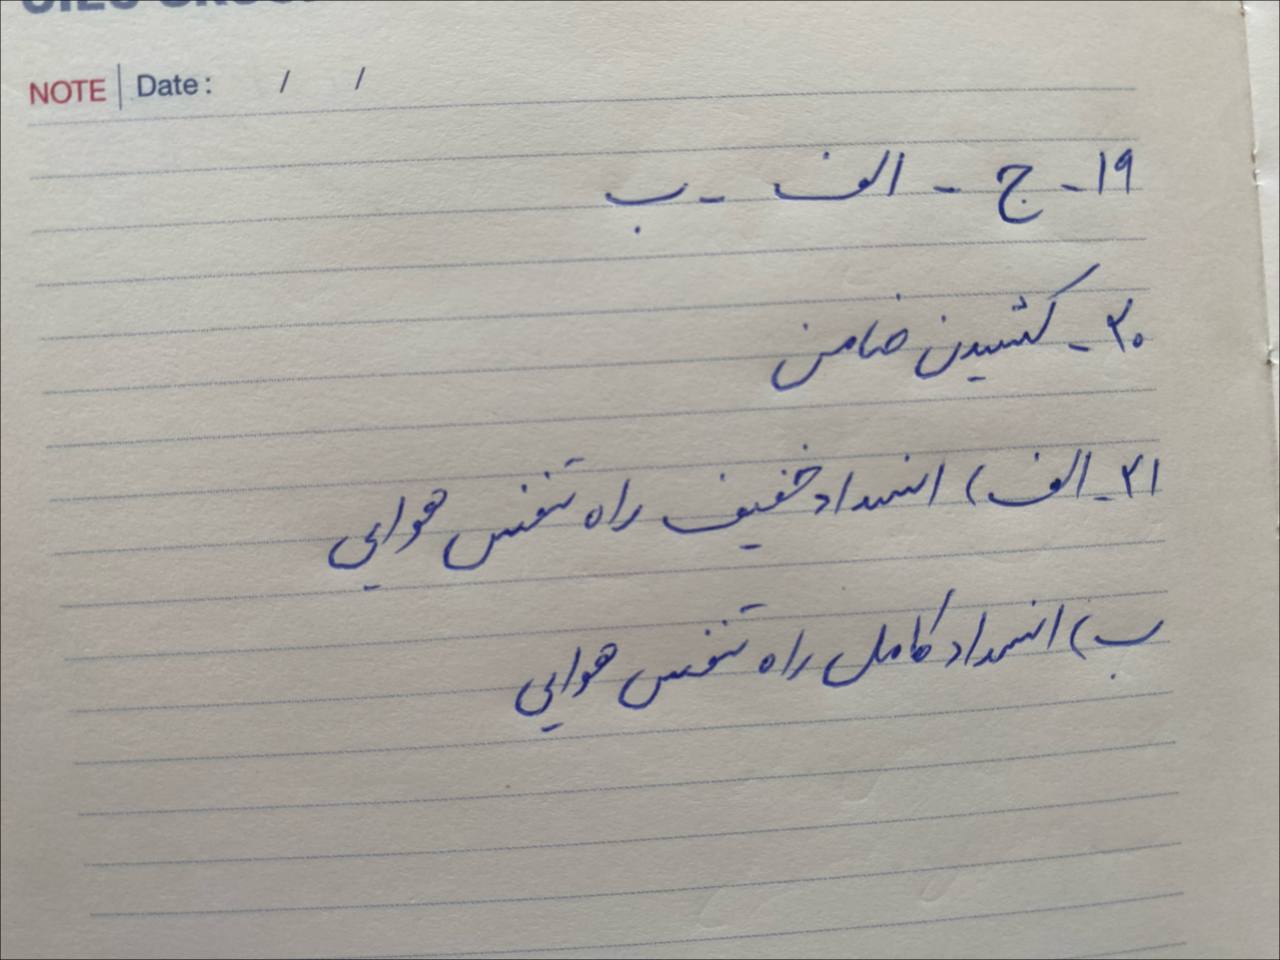 NOTE | Date: / /
۱۹- ج - الف - ب
۲۰- کشیدن ضامن
۲۱- الف) انسداد خفیف راه تنفس هوایی
ب) انسداد کامل راه تنفس هوایی